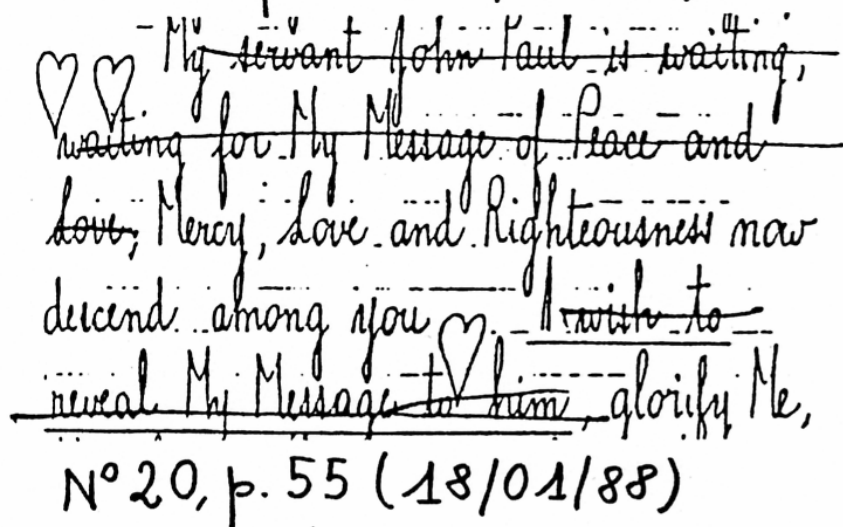 - My servant John Paul is waiting,
waiting for My Message of Peace and
Love; Mercy, Love and Righteousness now
descend among you - I wish to
reveal My Message to him, glorify Me,
Nº 20, p. 55 (18/01/88)